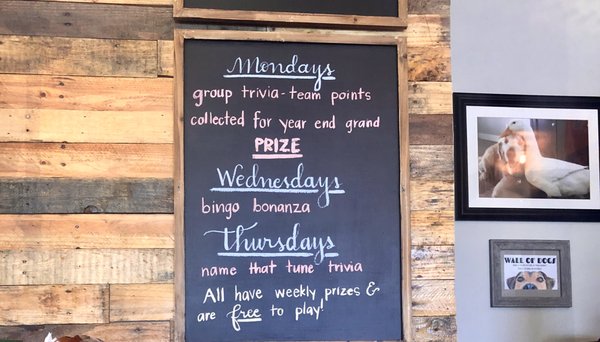 Mondays
group trivia - team points
collected for year end grand
PRIZE
Wednesdays
bingo bonanza
Thursdays
name that tune trivia
All have weekly prizes &
are free to play!
WALL OF DOGS